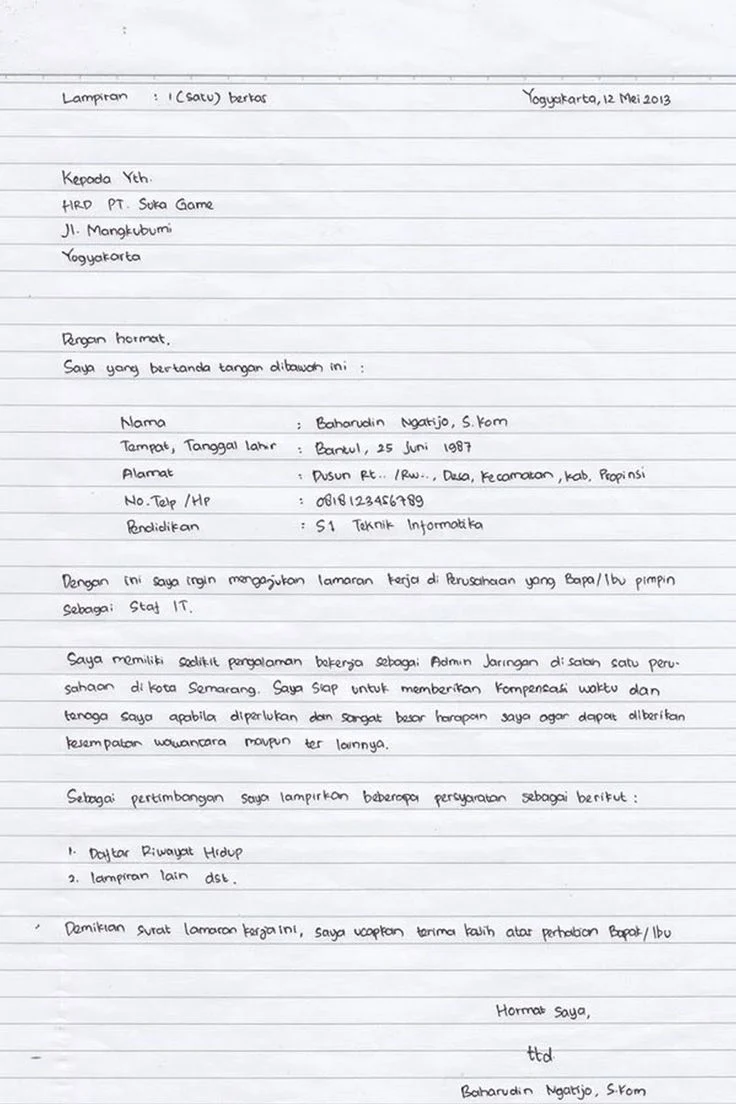 Lampiran : 1 (satu) berkas Yogyakarta, 12 Mei 2013
Kepada Yth.
HRD PT. Suka Game
Jl. Mangkubumi
Yogyakarta
Dengan hormat,
Saya yang bertanda tangan dibawah ini :
Nama : Baharudin Ngatijo, S.Kom
Tempat, Tanggal lahir : Bantul, 25 Juni 1987
Alamat : Dusun Rt.. /Rw.., Desa, Kecamatan, Kab, Propinsi
No. Telp / Hp : 0818123456789
Pendidikan : S1 Teknik Informatika
Dengan ini saya ingin mengajukan lamaran kerja di Perusahaan yang Bapa/Ibu pimpin
sebagai Staf IT.
Saya memiliki sedikit pengalaman bekerja sebagai Admin Jaringan di salah satu peru-
sahaan di kota Semarang. Saya siap untuk memberikan kompensasi waktu dan
tenaga saya apabila diperlukan dan sangat besar harapan saya agar dapat diberikan
kesempatan wawancara maupun tes lainnya.
Sebagai pertimbangan saya lampirkan beberapa persyaratan sebagai berikut :
1. Daftar Riwayat Hidup
2. lampiran lain dst.
Demikian surat lamaran kerja ini, saya ucapkan terima kasih atas perhatian Bapak/Ibu
Hormat Saya,
ttd
Baharudin Ngatijo, S.Kom